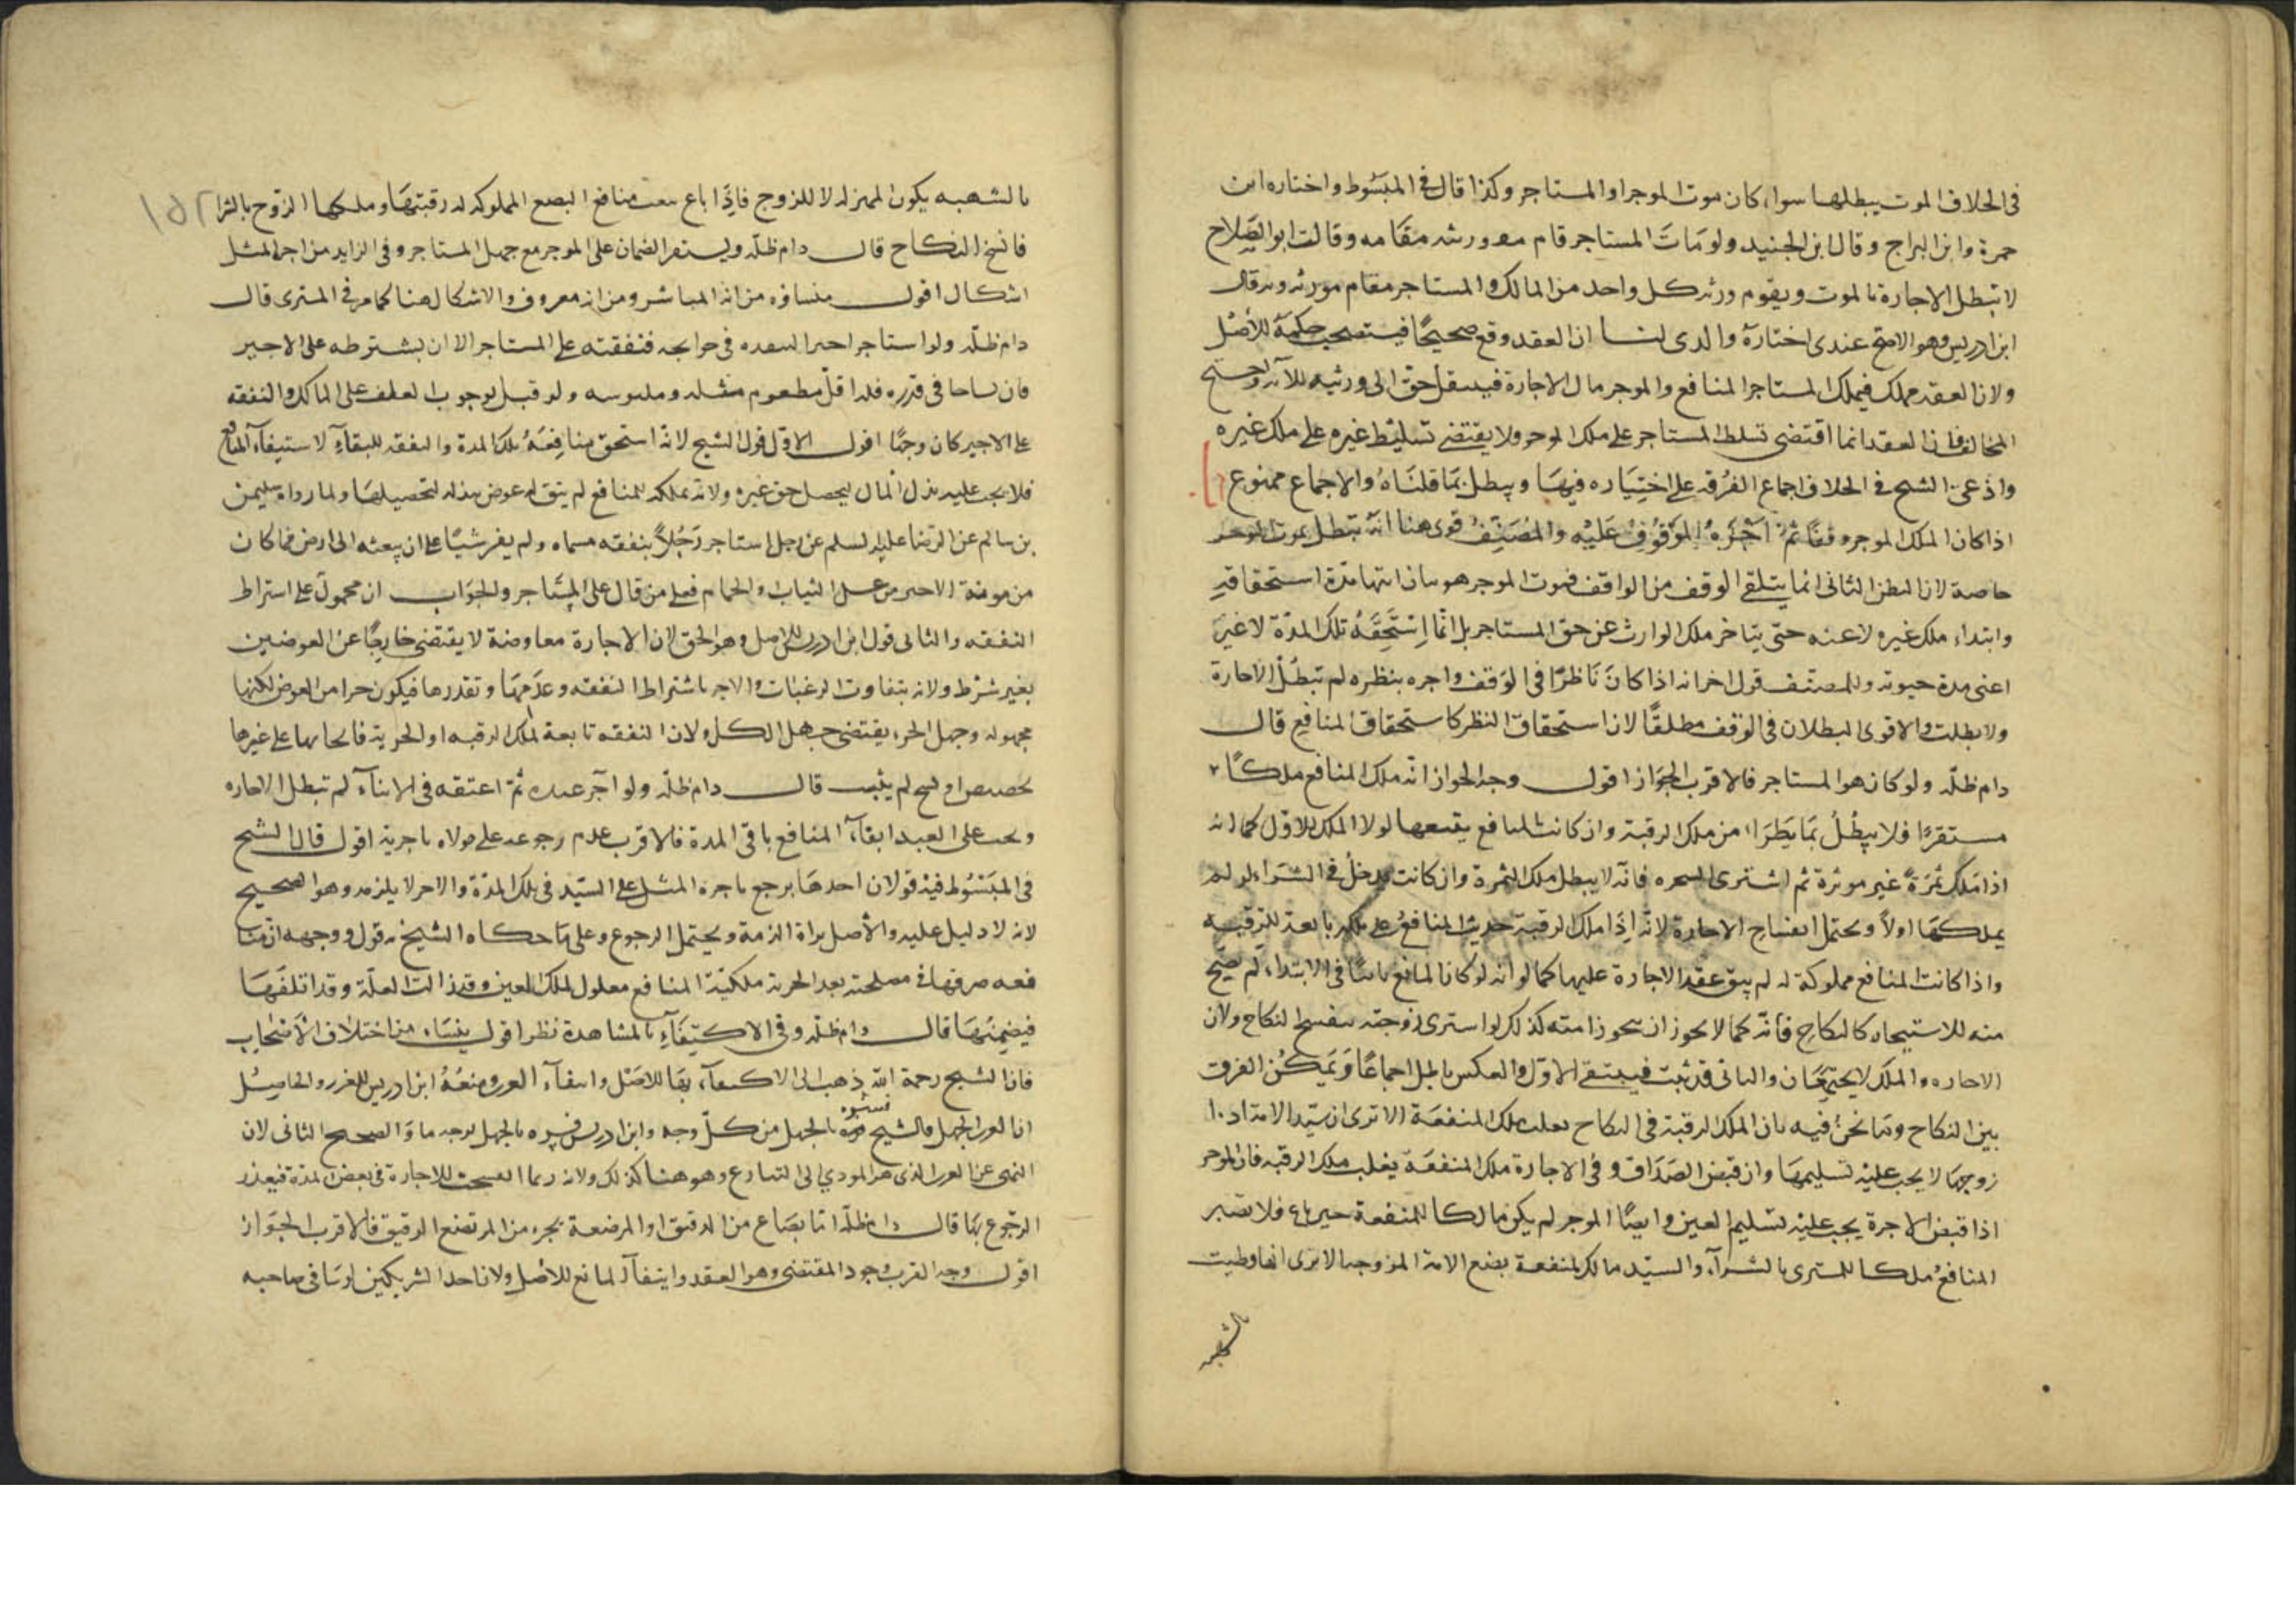 في الخلاف الموت يبطلها سواء كان موت الموجر او المستاجر وكذا قال في المبسوط واختاره ابن
حمزة وابن البراج وقال ابن الجنيد ولو مات المستاجر قام ورثته مقامه وقال ابو الصلاح
لا تبطل الاجارة بالموت ويقوم ورثه كل واحد من المالك والمستاجر مقام مورثه وبه قال
ابن ادريس وهو الاصح عندي اختارة والدي لنا ان العقد وقع صحيحًا فيستصحب حكمه للأصل
ولان العقد مملك فيملك المستاجر المنافع والموجر مال الاجارة فينتقل حق الى ورثته للآية واحتج
المخالف فان العقد انما اقتضى تسلط المستاجر على ملك الموجر ولا يقتضي تسليط غيره على ملك غيره
وادعى الشيخ في الخلاف اجماع الفرقه على اختياره فيها ويبطل بما قلناه والاجماع ممنوع
اذا كان الملك الموجر وقفًا ثم آجره الموقوف عليه والمصنف قوى هنا انه تبطل بموت الموجر
خاصة لان البطن الثاني انما يتلقى الوقف من الواقف فموت الموجر هو بيان انتها مدة استحقاقه
وابتداء ملك غيره لا عنه حتى يتاخر ملك الوارث عن حق المستاجر بل انما استحقه تلك المدة لا غير
اعني مدة حيوته وللمصنف قول اخر انه اذا كان ناظرًا في الوقف واجره بنظره لم تبطل الاجارة
ولا بطلت والاقوى البطلان في الوقف مطلقًا لان استحقاق النظر كاستحقاق المنافع قال
دام ظله ولو كان هو المستاجر فالاقرب الجواز اقول وجه الجواز انه ملك المنافع ملكًا
مستقرًا فلا يبطل بما يطرا من ملك الرقبة وان كانت المنافع يتبعها لولا الملك الاول كما انه
اذا ملك ثمرة غير موبرة ثم اشترى الشجره فانه لا يبطل ملك الثمرة وان كانت تدخل في الشراء لو لم
يملكها اولًا ويحتمل انفساخ الاجارة لانه اذا ملك الرقبة حدثت المنافع على ملكه تابعة للرقبة
واذا كانت المنافع مملوكة له لم يبق عقد الاجارة عليها كما لو انه لو كان المانع ثابتًا في الابتداء لم تصح
منه للاستيجار كالنكاح فانه كما لا يجوز ان يتزوج امته كذلك لو اشترى زوجته ينفسخ النكاح ولان
الاجاره والملك لا يجتمعان والثاني قد ثبت فينتفي الاول والعكس باطل اجماعًا ويمكن الفرق
بين النكاح وما نحن فيه بان الملك الرقبة في النكاح يغلب ملك المنفعة الا ترى ان سيد الامة اذا
زوجها لا يجب عليه تسليمها وان قبض الصداق وفي الاجارة ملك المنفعة يغلب ملك الرقبة فان الموجر
اذا قبض الاجرة يجب عليه تسليم العين وايضًا الموجر لم يكن مالكا للمنفعة حين باع فلا تصير
المنافع ملكا للمشتري بالشراء والسيد مالك لمنفعة بضع الامة المزوجه الا ترى انها وطيت
بالشبهه
بالشبهه يكون المهر له لا للزوج فاذا باع بيعت منافع البضع المملوكه له رقبتها وملكها الزوج بالشرا
١٥٢
فانفسخ النكاح قال دام ظله ويستقر الضمان على الموجر مع جهل المستاجر وفي الزايد من اجر المثل
اشكال اقول منشاؤه من انه المباشر ومن انه مغرور والاشكال هنا كما مر في المشتري قال
دام ظله ولو استاجر اجيرا لينفذه في حوايجه فنفقته على المستاجر الا ان يشترطه على الاجير
فان تشاحا في قدره فله اقل مطعوم مثله وملبوسه ولو قيل بوجوب العلف على المالك والنفقه
على الاجير كان وجهًا اقول الاول قول الشيخ لانه استحق منافعه تلك المدة والنفقه للبقاء لاستيفاء المنافع
فلا يجب عليه بذل المال ليحصل حق غيره ولانه تملكه للمنافع لم يبق له عوض يبذله لتحصيلها ولما رواه سليمن
بن سالم عن الرضا عليه السلم عن رجل استاجر رجلًا بنفقه مسماه ولم يفسر شيئًا على ان يبعثه الى ارض فما كان
من مؤنة الاجير من غسل الثياب والحمام فعلى من قال على المستاجر والجواب انه محمول على اشتراط
النفقه والثاني قول ابن ادريس للاصل وهو الحق لان الاجارة معاوضة لا يقتضي خارجًا عن العوضين
بغير شرط ولانه يتفاوت الرغبات والاجر باشتراط النفقه وعدمها وتقدرها فيكون جزا من العوض لكنها
مجهوله وجهل الجزء يقتضي جهل الكل ولان النفقه تابعة لملك الرقبه او الحرية فايجابها على غيرها
تخصيص او نسخ لم يثبت قال دام ظله ولو آجر عبده ثم اعتقه في الاثناء لم تبطل الاجاره
ويجب على العبد ابقاء المنافع باقي المدة فالاقرب عدم رجوعه على مولاه باجرة اقول قال الشيخ
في المبسوط فيه قولان احدهما يرجع باجره المثل على السيد في تلك المدة والاخر لا يلزمه وهو الصحيح
لانه لا دليل عليه والأصل براة الذمة ويحتمل الرجوع وعلى ما حكاه الشيخ من قول ووجهه انه منافعه
منعه صرفها في مصلحته بعد الحرية ملكية المنافع معلول لملك العين وقد زالت العلة وقد اتلفها
فيضمنها قال دام ظله وفي الاكتفاء بالمشاهدة نظر اقول ينشاء من اختلاف الأصحاب
فان الشيخ رحمة الله ذهب الى الاكتفاء بها للاصل وانتفاء الغرر ومنعه ابن ادريس للغرر والحاصل
ان الغرر الجهل فالشيخ فسره بالجهل من كل وجه وابن ادريس فسره بالجهل بوجه ما والصحيح الثاني لان
النهي عن الغرر الذي هو المودي الى التنازع وهو هنا كذلك ولانه ربما انفسخت الاجارة في بعض المدة فيتعذر
الرجوع بها قال دام ظله اما بصاع من الدقيق او المرضعة بجزء من المرتضع الرقيق فالاقرب الجواز
اقول وجه القرب وجود المقتضي وهو العقد وانتفاء المانع للأصل ولان احد الشريكين اوسافي صاحبه